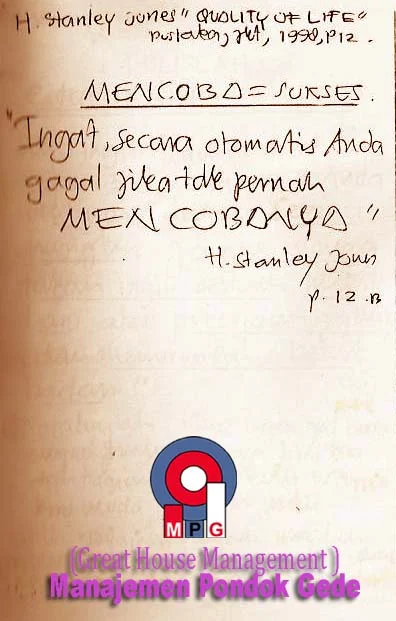 H. Stanley Jones "QUALITY OF LIFE"
Pustaka, Jkt, 1998, P12.
MENCOBA = SUKSES.
"Ingat, secara otomatis Anda
gagal jika tdk pernah
MENCOBANYA"
H. Stanley Jones
p. 12.B
MPG
(Great House Management )
Manajemen Pondok Gede